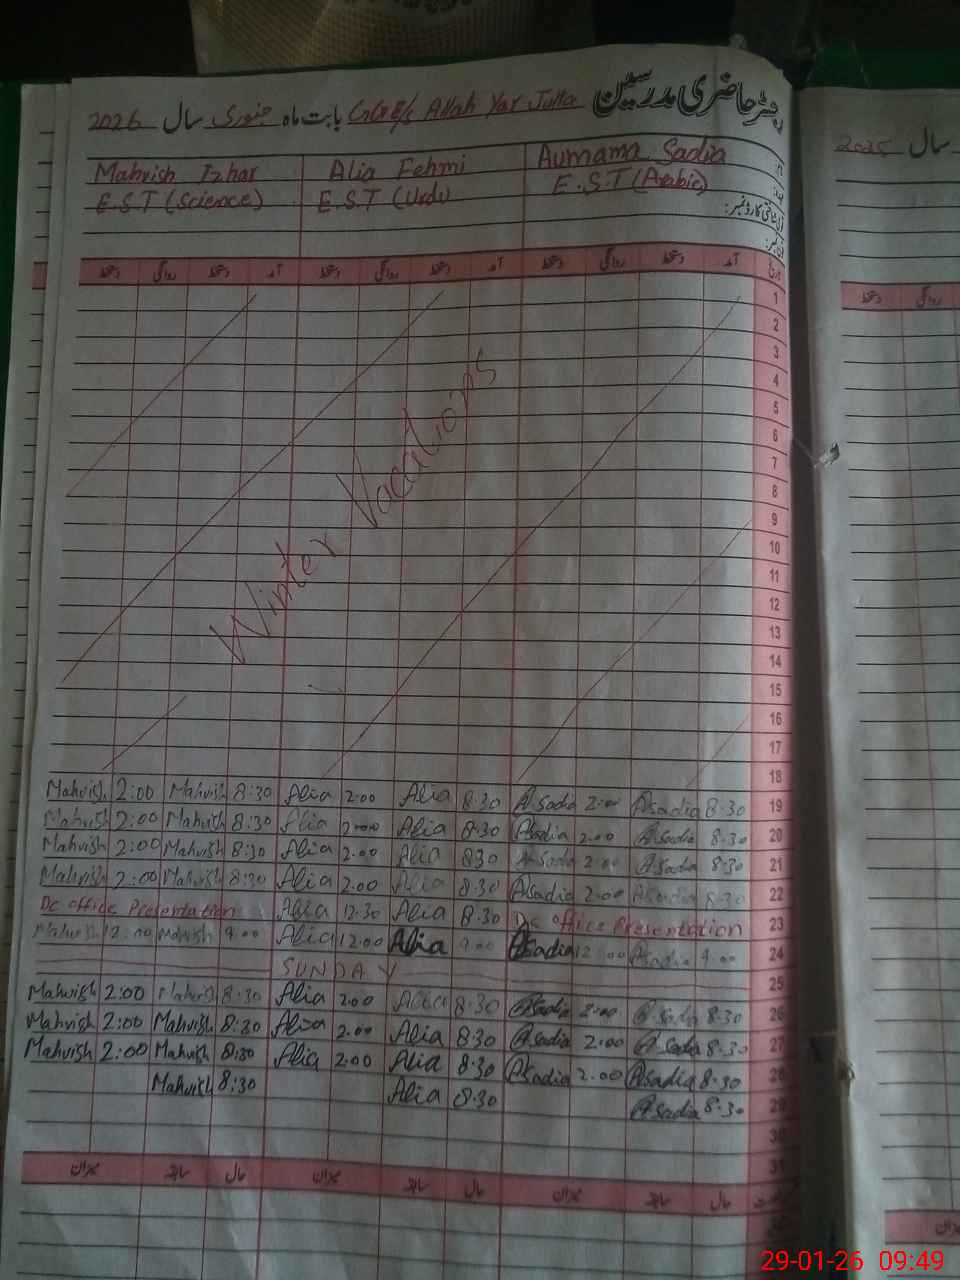 رجسٹر حاضری مدرسین GGES Allah Yar Jutta بابت ماہ جنوری سال 2026
سال 2025
Aumama Sadia Alia Fehmi Mahvish Izhar
E.S.T (Arabic) E.S.T (Urdu) E.S.T (Science)
شناختی کارڈ نمبر:
تاریخ آمد دستخط روانگی دستخط آمد دستخط روانگی دستخط آمد دستخط روانگی دستخط
روانگی دستخط
1
2
3
4
5
6
7
8
9
10
11
12
13
14
15
16
17
18
Winter Vacations
Mahvish 2:00 Mahvish 8:30 Alia 2:00 Alia 8:30 A.Sadia 2:00 A.Sadia 8:30 19
Mahvish 2:00 Mahvish 8:30 Alia 2:00 Alia 8:30 A.Sadia 2:00 A.Sadia 8:30 20
Mahvish 2:00 Mahvish 8:30 Alia 2:00 Alia 8:30 A.Sadia 2:00 A.Sadia 8:30 21
Mahvish 2:00 Mahvish 8:30 Alia 2:00 Alia 8:30 A.Sadia 2:00 A.Sadia 8:30 22
Dc office Presentation Alia 12:30 Alia 8:30 Dc office Presentation 23
Mahvish 12:00 Mahvish 9:00 Alia 12:00 Alia 9:00 A.Sadia 12:00 A.Sadia 9:00 24
SUNDAY 25
Mahvish 2:00 Mahvish 8:30 Alia 2:00 Alia 8:30 A.Sadia 2:00 A.Sadia 8:30 26
Mahvish 2:00 Mahvish 8:30 Alia 2:00 Alia 8:30 A.Sadia 2:00 A.Sadia 8:30 27
Mahvish 2:00 Mahvish 8:30 Alia 2:00 Alia 8:30 A.Sadia 2:00 A.Sadia 8:30 28
Mahvish 8:30 Alia 8:30 A.Sadia 8:30 29
30
31
حال سابقہ میزان حال سابقہ میزان حال سابقہ میزان
میزان
29-01-26 09:49